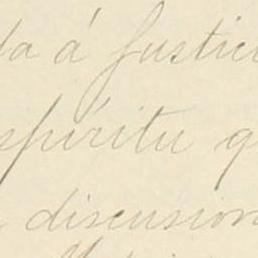 da á justici
spíritu q
discusion